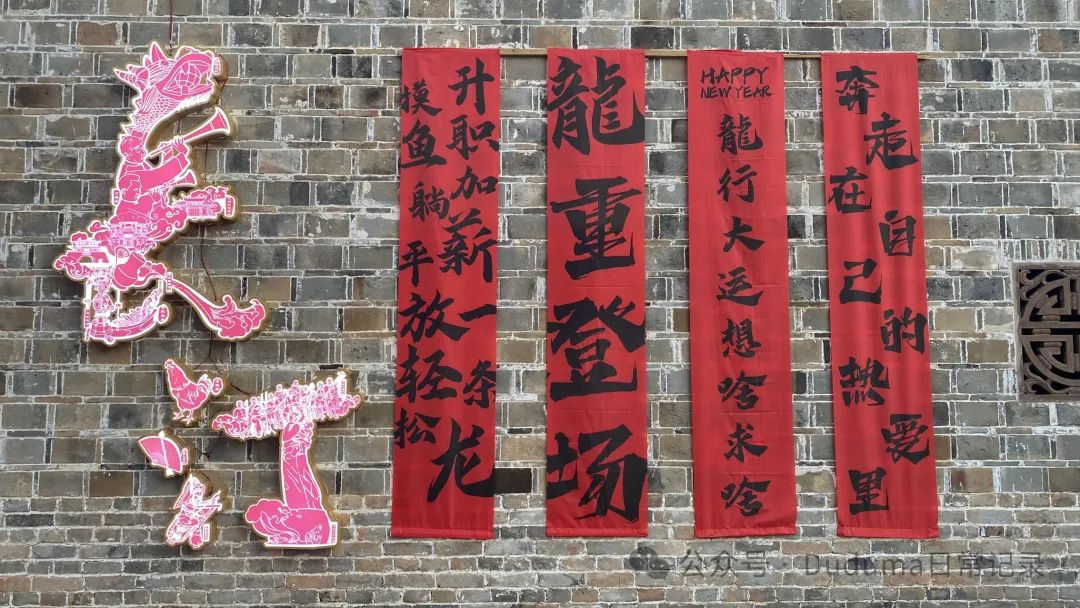 长汀
升职加薪一条龙
摸鱼躺平放轻松
龍重登场
HAPPY
NEW YEAR
龍行大运想啥求啥
奔走在自己的热爱里
公众号 · Duduma日常记录